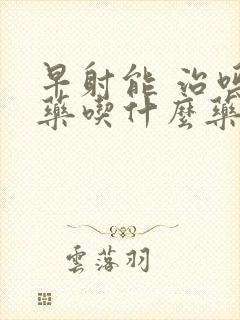 早射能 治嗎
藥喫什麼藥
雲落羽